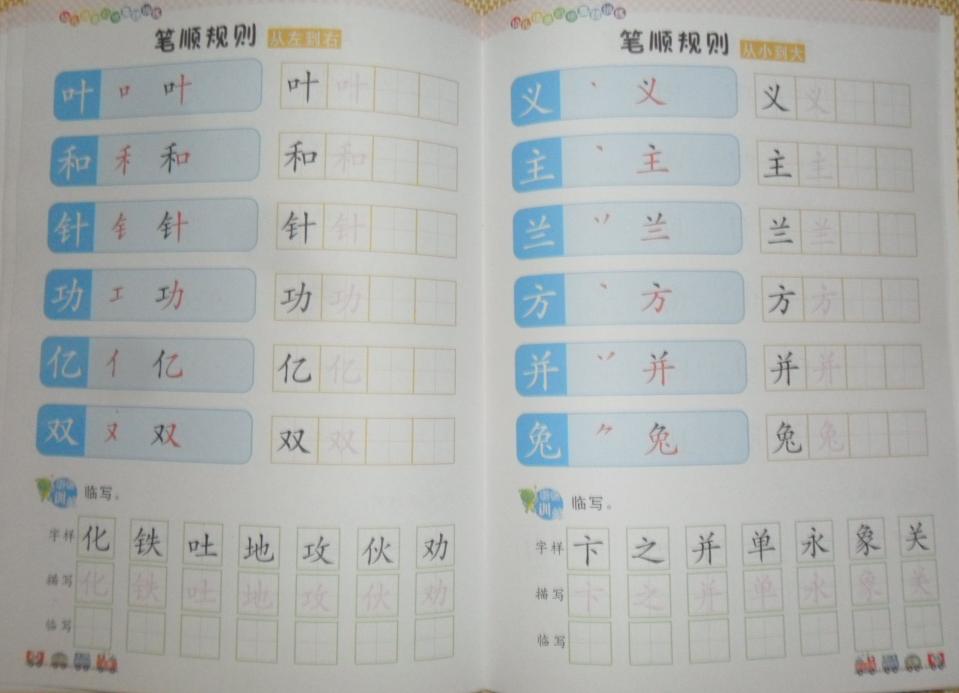 笔顺规则 从左到右
叶 口 叶 叶 叶
和 禾 和 和 和
针 钅 针 针 针
功 工 功 功 功
亿 亻 亿 亿 亿
双 又 双 双 双
训 临写。
字样 化 铁 吐 地 攻 伙 劝
描写 化 铁 吐 地 攻 伙 劝
临写
笔顺规则 从小到大
义 丶 义 义 义
主 丶 主 主 主
兰 丷 兰 兰 兰
方 丶 方 方 方
并 丷 并 并 并
兔 ⺈ 兔 兔 兔
训 临写。
字样 卞 之 并 单 永 象 关
描写 卞 之 并 单 永 象 关
临写